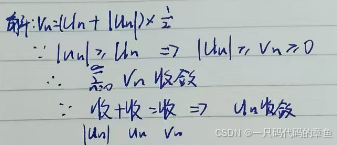 解: Vn=(Un + |Un|)×1/2
∵ |Un| ≥ Un ⇒ |Un| ≥ Vn ≥ 0
∴ ∞∑n=0 Vn 收敛
∵ 收+收=收 ⇒ Un收敛
|Un| Un Vn
CSDN @一只码代码的章鱼